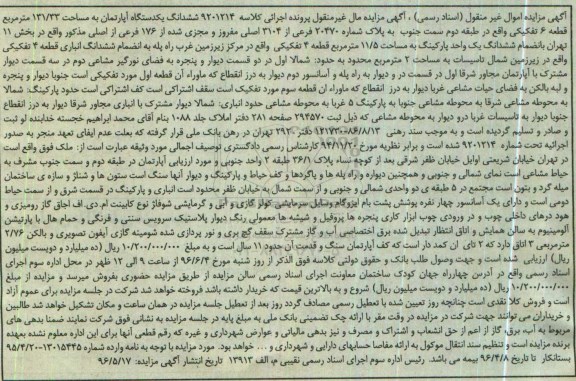 آگهی مزایده اموال غیر منقول (اسناد رسمی) ، آگهی مزایده مال غیرمنقول پرونده اجرائی کلاسه ۹۲۰۱۲۱۴ ششدانگ یکدستگاه آپارتمان به مساحت ۱۳۱/۳۳ مترمربع
قطعه ۶ تفکیکی واقع در طبقه دوم سمت جنوب به پلاک شماره ۲۰۴۷۰ فرعی از ۳۱۰۴ اصلی مفروز و مجزی شده از ۱۷۶ فرعی از اصلی مذکور واقع در بخش ۱۱
تهران بانضمام ششدانگ یک واحد پارکینگ به مساحت ۱۱/۵ مترمربع قطعه ۴ تفکیکی واقع در مرکز زیرزمین غرب راه پله به انضمام ششدانگ انباری قطعه ۴ تفکیکی
واقع در زیرزمین شمال تاسیسات به مساحت ۲ مترمربع محدود به حدود: شمالا اول در دو قسمت دیوار و پنجره به فضای نورگیر مشاعی دوم در سه قسمت دیوار
مشترک با آپارتمان مجاور شرقا اول در قسمت در و دیوار به راه پله و آسانسور دوم دیوار به درز انقطاع که ماوراء آن قطعه اول مورد تفکیکی است جنوبا دیوار و پنجره
و لبه بالکن به فضای حیاط مشاعی غربا دیوار به درز انقطاع که ماوراء آن قطعه سوم مورد تفکیک است سقف اشتراکی است کف اشتراکی است حدود پارکینگ: شمالا
به محوطه مشاعی شرقا به محوطه مشاعی جنوبا به پارکینگ ۵ غربا به محوطه مشاعی حدود انباری: شمالا دیوار مشترک با انباری مجاور شرقا دیوار به درز انقطاع
جنوبا دیوار به تاسیسات غربا درو دیوار به محوطه مشاعی که ذیل ثبت ۲۹۵۷۰ صفحه ۲۸۱ دفتر املاک جلد ۱۰۸۸ بنام آقای محمد ابراهیم خجسته خدابنده لو ثبت
و صادر و تسلیم گردیده است و به موجب سند رهنی ۱۲۱۷۳۰-۸۶/۸/۱۳ دفتر ۲۹۲ تهران در رهن بانک ملی قرار گرفته که بعلت عدم ایفای تعهد منجر به صدور
اجرائیه تحت شماره ۹۲۰۱۲۱۴ شده است و برابر نظریه مورخ ۹۴/۱۰/۲۰ کارشناس رسمی دادگستری توصیف اجمالی مورد وثیقه عبارت است از: ملک فوق واقع است
در تهران خیابان شریعتی اوایل خیابان ظفر شرقی بعد از کوچه نساء پلاک ۳۶/۱ طبقه ۲ واحد جنوبی و مورد ارزیابی آپارتمان در طبقه دوم و سمت جنوب مشرف به
حیاط مشاعی است نمای شمالی و جنوبی و همچنین دیواره و راه پله ها و پاگردها و کف حیاط و پارکینگ و دیوار آنها سنگ است ستون ها و شناژ و سازه ی ساختمان
میله گرد و بتون است مجتمع در ۵ طبقه ی دو واحدی شمالی و جنوبی و از سمت شمال به خیابان ظفر محدود است انباری و پارکینگ در قسمت شرق و از سمت حیاط
دومی است و دارای یک آسانسور چهار نفره پوشش پشت بام ایزوگام وسایل سرمایشی کولر گازی و آبی و گرمایشی شوفاژ نوع کابینت ام.دی.اف اجاق گاز رومیزی و
هود درهای داخلی چوب و در ورودی چوب ابزار کاری پنجره ها پروفیل و شیشه ها معمولی رنگ دیوار پلاستیک سرویس سنتی و فرنگی و حمام هال با پارتیشن
آلومینیوم به سالن همایش و اتاق انتظار تبدیل شده برق اختصاصی آب و گاز مشترک سقف گچ بری و نور پردازی شده شومینه گازی آیفون تصویری و بالکن ۲/۷۶
مترمربعی ۳ اتاق دارد که ۲ تای آن کمد دار است کف آپارتمان سنگ و قدمت آن حدود ۱۱ سال است و به مبلغ ۱۰/۲۰۰/۰۰۰/۰۰۰ ریال (ده میلیارد و دویست میلیون
ریال) ارزیابی شده است و جهت وصول طلب بانک و حقوق دولتی کلاسه فوق الذکر از روز شنبه مورخ ۹۶/۶/۴ از ساعت ۹ الی ۱۲ ظهر در محل اداره سوم اجرای
اسناد رسمی واقع در آدرس چهارراه جهان کودک ساختمان معاونت اجرای اسناد رسمی سالن مزایده از طریق مزایده حضوری بفروش میرسد و مزایده از مبلغ
۱۰/۲۰۰/۰۰۰/۰۰۰ ریال (ده میلیارد و دویست میلیون ریال) شروع و به بالاترین قیمت که خریدار داشته باشد فروخته خواهد شد شرکت در جلسه مزایده برای عموم آزاد
است و فروش کلا نقدی است چنانچه روز تعیین شده با تعطیل رسمی مصادف گردد روز بعد از تعطیل جلسه مزایده در همان ساعت و مکان تشکیل خواهد شد طالبین
و خریداران می توانند جهت شرکت در مزایده در وقت مقرر با ارائه چک تضمینی بانک ملی به مبلغ پایه در جلسه مزایده به نشانی فوق شرکت نمایند ضمنا بدهی های
مربوط به آب، برق، گاز از اعم از حق انشعاب و اشتراک و مصرف و نیز بدهی مالیاتی و عوارض شهرداری و غیره که رقم قطعی آنها برای این اداره معلوم نشده بعهده
برنده مزایده است و تنظیم سند انتقال موکول به ارائه مفاصا حسابهای دارایی و شهرداری و ... خواهد بود. مورد مزایده با توجه به نامه وارده شماره ۱۳۰۱۵۴۴۵-۹۵/۴/۲۰
بستانکار تا تاریخ ۹۶/۴/۸ بیمه می باشد. رئیس اداره سوم اجرای اسناد رسمی نقیبی م، الف ۱۳۹۱۳ تاریخ انتشار آگهی مزایده: ۹۶/۵/۱۷